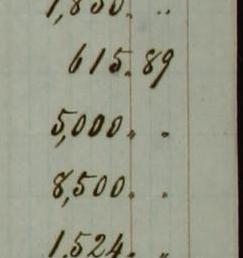 1,830. ..
615.89
5,000. .
8,500. .
1,524. ..